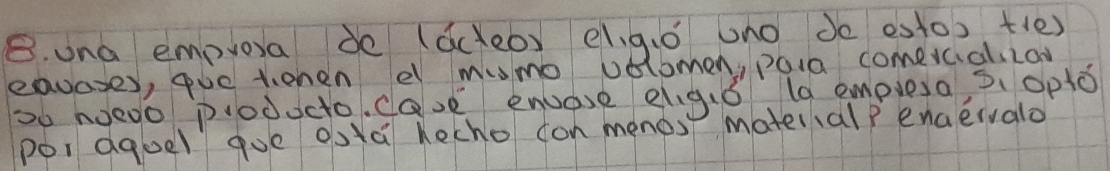 8. una empresa de lácteos eligió uno de estos tres
envases, que tienen el mismo volomen, para comercializar
su nuevo producto. ¿Qué envase eligió la empresa si optó
por aquel que está hecho con menos material? enciérralo